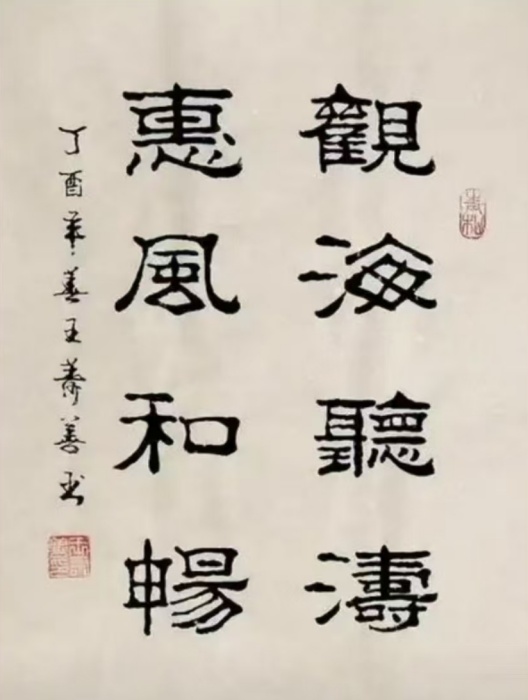 觀海聽濤
惠風和暢
丁酉年春王壽善書